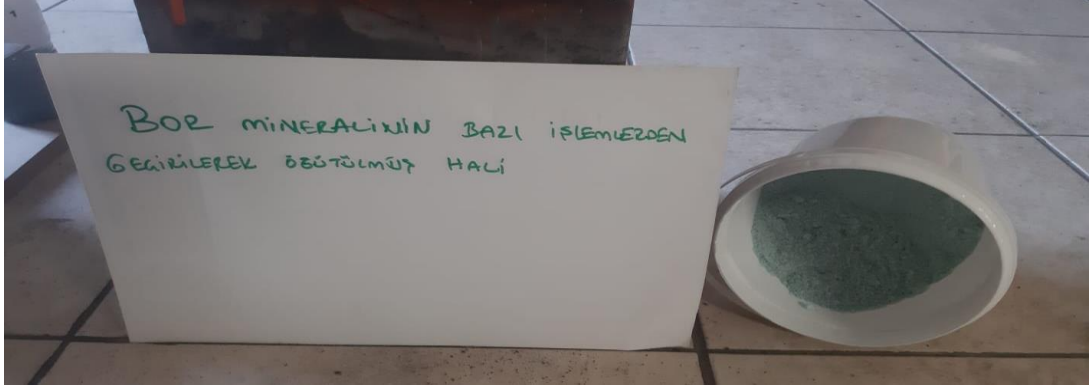 BOR MİNERALİNİN BAZI İŞLEMLERDEN
GEÇİRİLEREK ÖĞÜTÜLMÜŞ HALİ